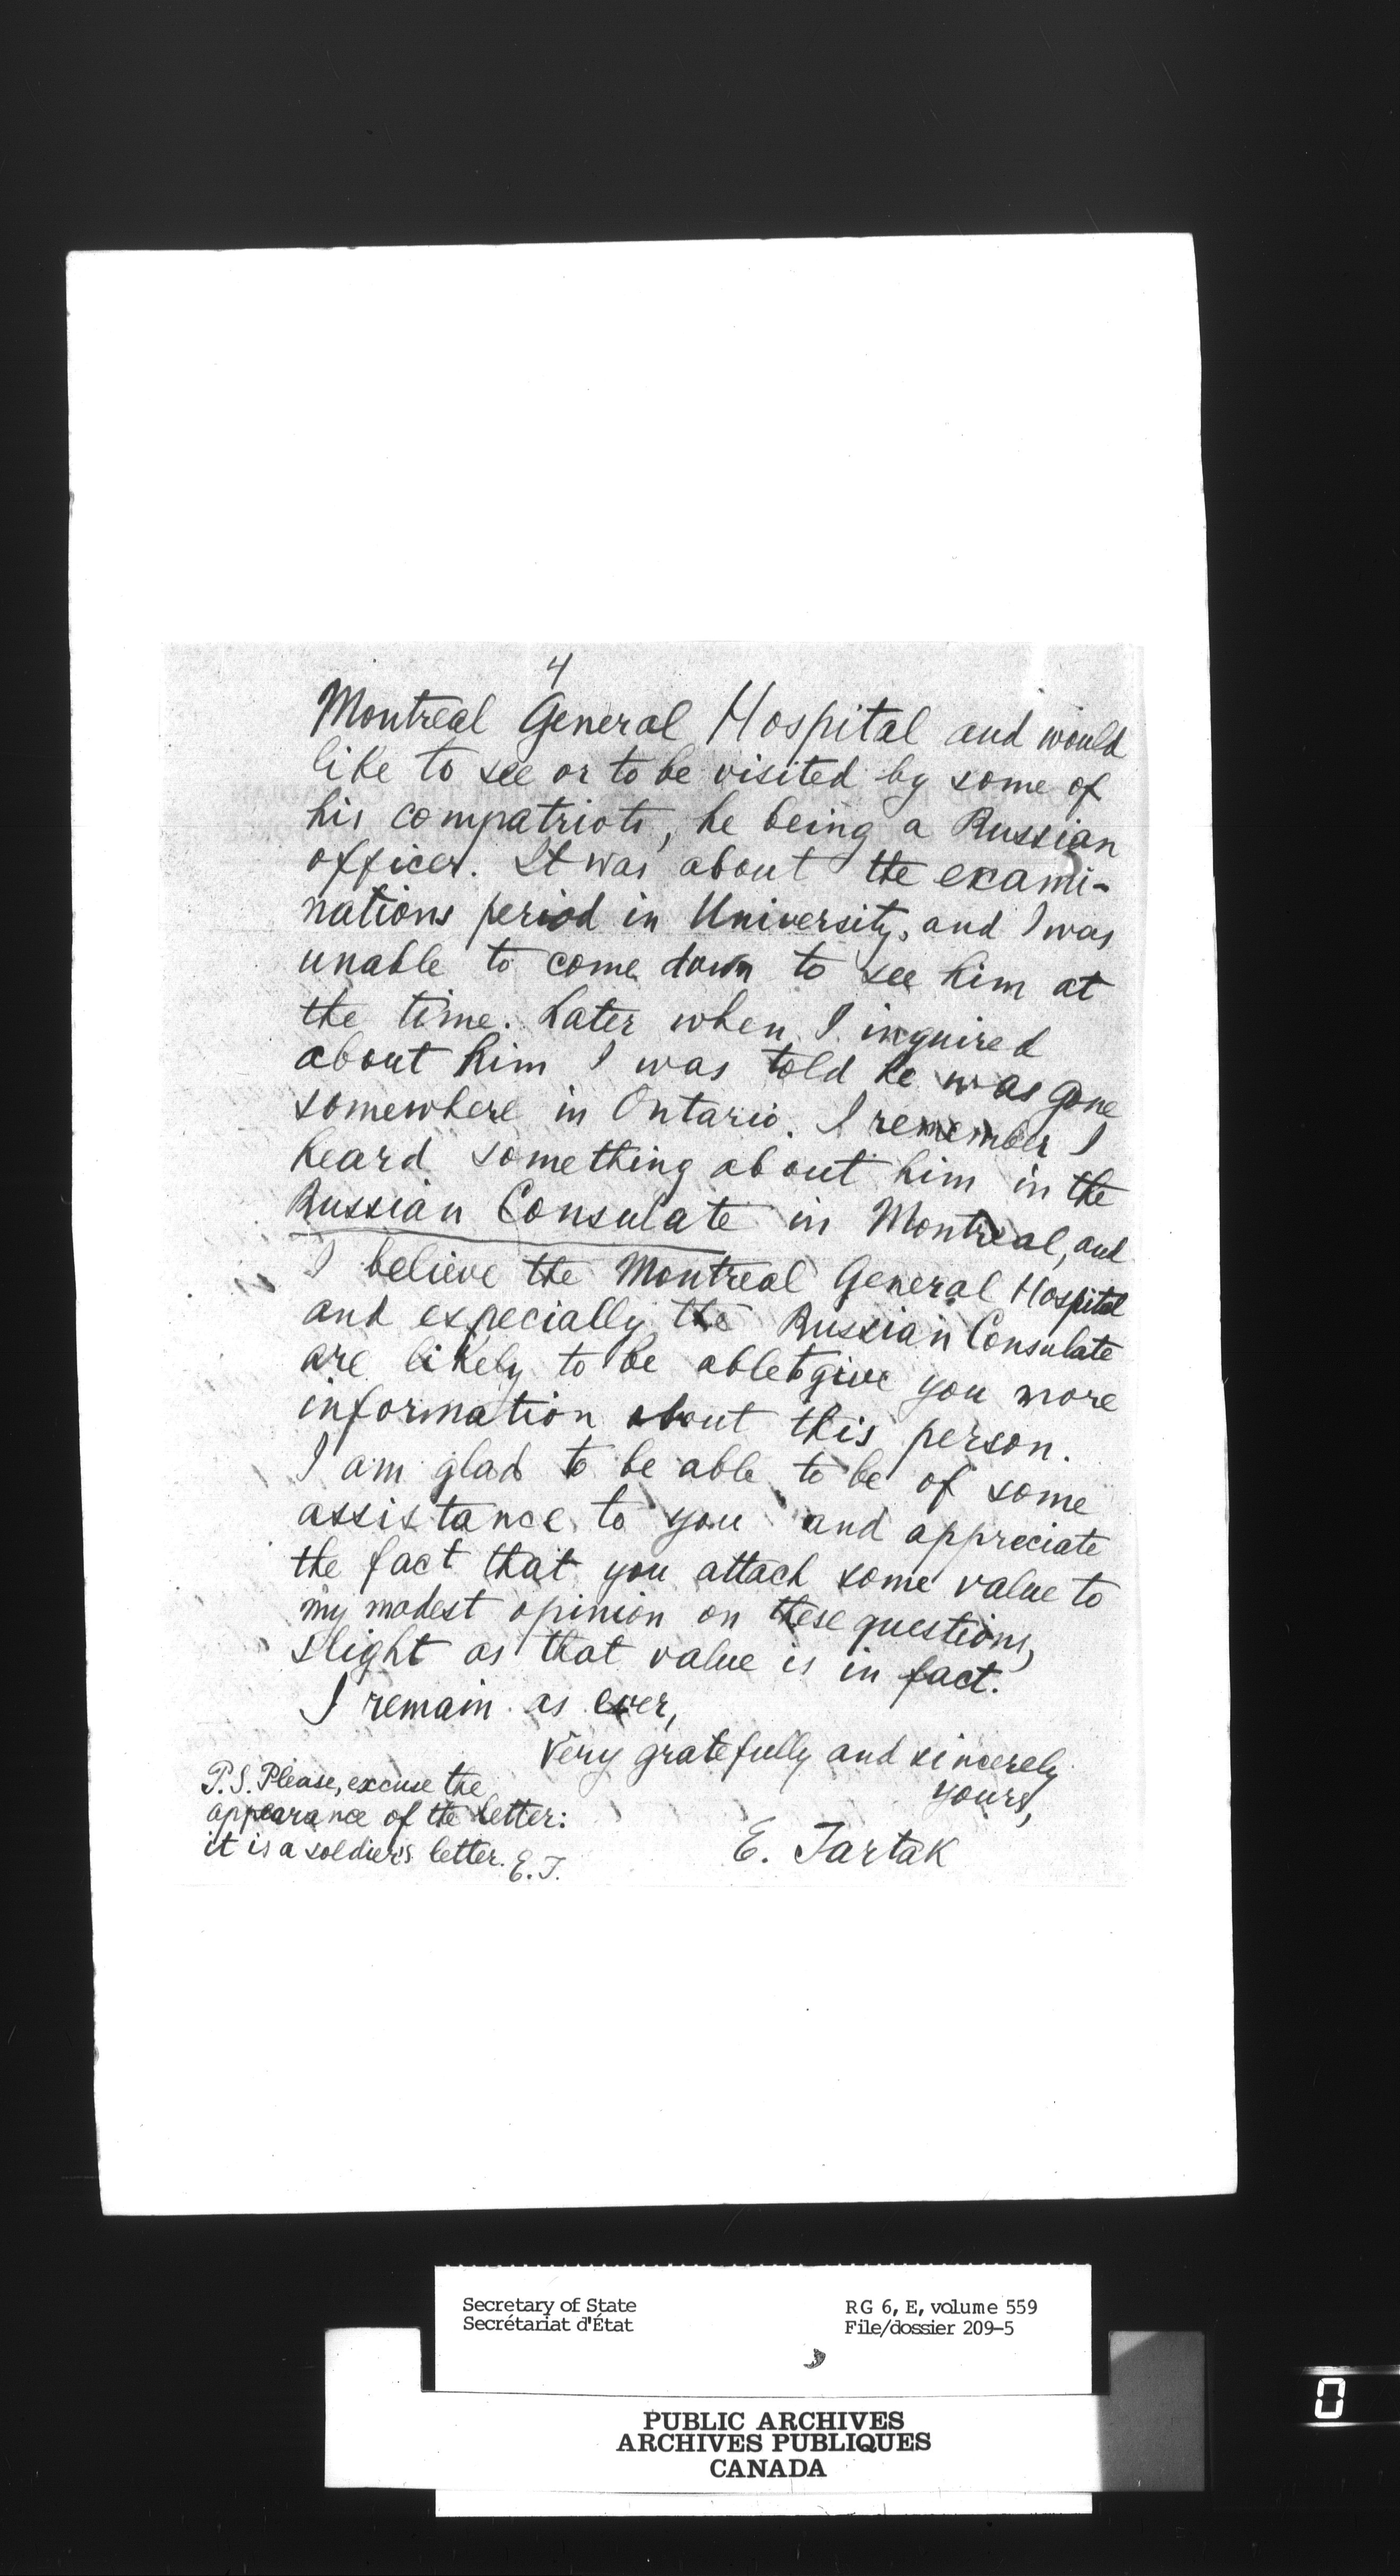 4
Montreal General Hospital and would
like to see or to be visited by some of
his compatriots, he being a Russian
officer. It was about the exami-
nations period in University, and I was
unable to come down to see him at
the time. Later when I inquired
about him I was told he was gone
somewhere in Ontario. I remember I
heard something about him in the
Russian Consulate in Montreal, and
I believe the Montreal General Hospital
and especially the Russian Consulate
are likely to be able to give you more
information about this person.
I am glad to be able to be of some
assistance to you and appreciate
the fact that you attach some value to
my modest opinion on these questions,
slight as that value is in fact.
I remain as ever,
Very gratefully and sincerely
yours,
E. Tartak
P.S. Please, excuse the
appearance of the letter:
it is a soldier's letter. E.T.
Secretary of State
Secrétariat d'État
RG 6, E, volume 559
File/dossier 209-5
PUBLIC ARCHIVES
ARCHIVES PUBLIQUES
CANADA
0